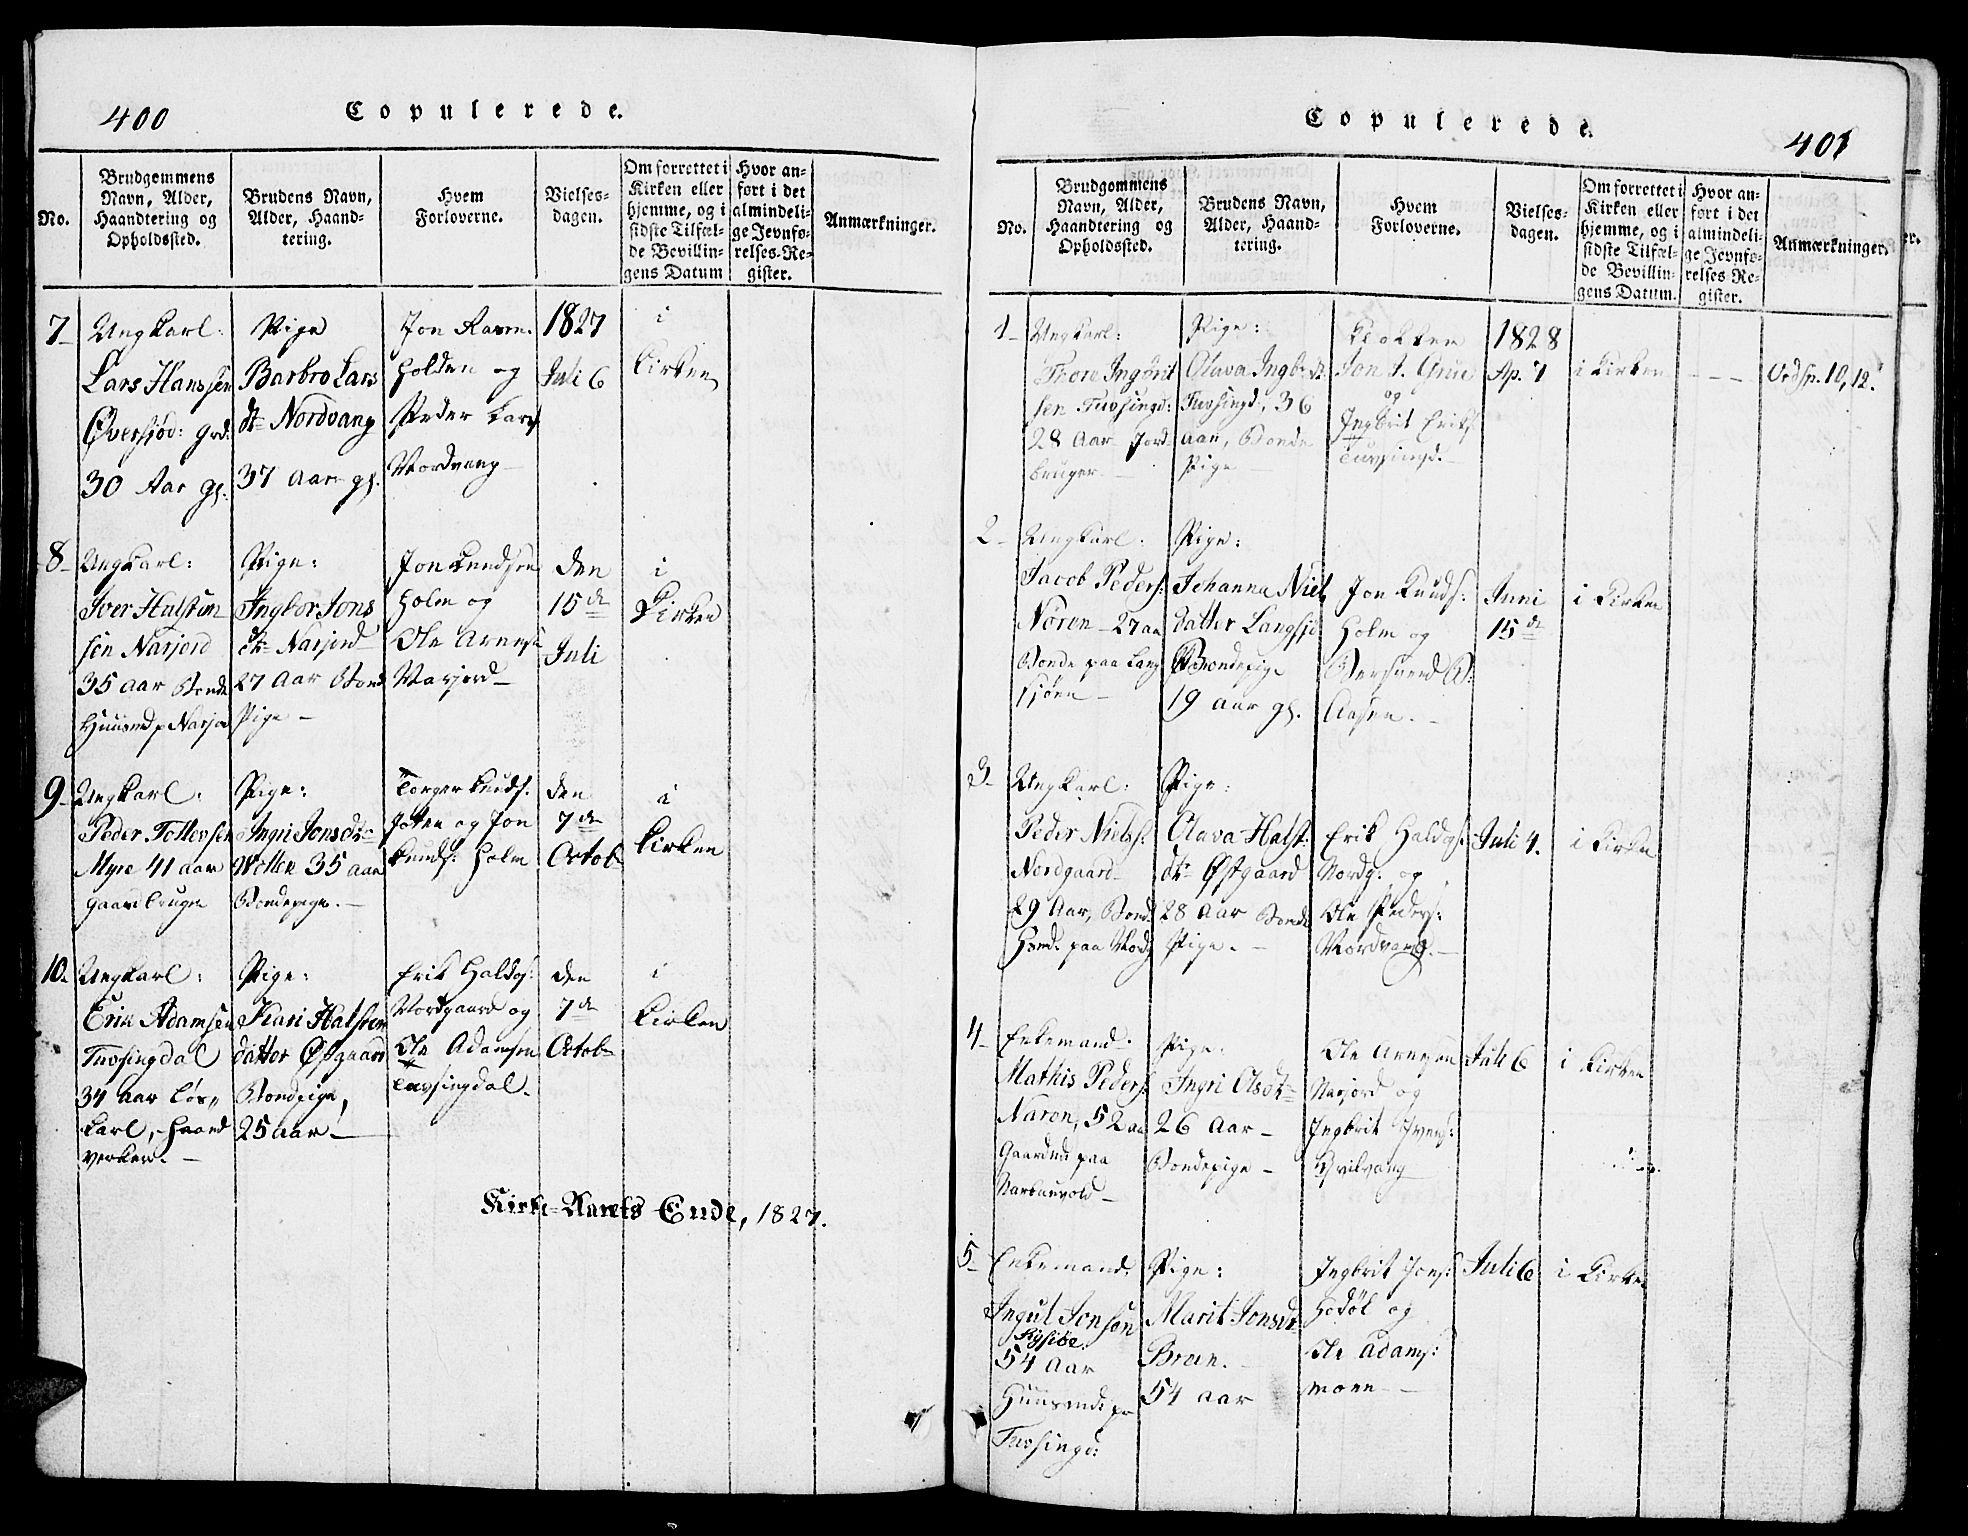 400
Copulerede.
No.
Brudgommens
Navn, Alder,
Haandtering og
Opholdssted.
Brudens Navn,
Alder, Haand-
tering.
Hvem
Forloverne.
Vielses-
dagen.
Om forrettet i
Kirken eller
hjemme, og i
sidste Tilfæl-
de Bevillin-
gens Datum
Hvor an-
ført i det
almindeli-
ge Jevnfø-
relses-Re-
gister.
Anmærkninger.
7
Ungkarl:
Lars Hanssen
Øversjød: grd:
30 Aar gl:
Pige
Barbro Lars
dtr Nordvang
37 Aar gl.
Jon Aasen
Holden og
Peder Lars
Nordvang
1827
Juli 6
i
Kirken
8
Ungkarl:
Iver Hulstun
sen Narjord
35 aar Bonde
Huusmd p Narjor
Pige:
Ingbor Jons
dtr Narjord
27 Aar Bond
Pige
Jon Knudsen
Holm og
Ole Arnes:
Narjord
den
15de
Juli
i
Kirken
9
Ungkarl:
Peder Tollevsen
Myre 41 aar
gaardbruger
Pige:
Ingri Jonsdtr
Wollen 35 aar
Bondepige.
Torger Knuds:
og Jon
Knuds: Holm
den
7de
Octob
i
Kirken
10
Ungkarl:
Erik Adamsen
Tuvsingdal
34 aar Løs
karl, Haand
verker.
Pige:
Kari Halsten
datter Østgaard
Bondpige,
25 aar
Erik Haldos:
Nordgaard og
Ole Adamsen
Tuvsingdal.
den
7de
Octob
i
Kirken
Kirke-Aarets Ende, 1827.
Copulerede.
401
No.
Brudgommens
Navn, Alder,
Haandtering og
Opholdssted.
Brudens Navn,
Alder, Haand-
tering.
Hvem
Forloverne.
Vielses-
dagen.
Om forrettet i
Kirken eller
hjemme, og i
sidste Tilfæl-
de Bevillin-
gens Datum.
Hvor an-
ført i det
almindeli-
ge Jevnfø-
relses Re-
gister.
Anmærkninger.
1
Ungkarl:
Thore Ingbrit
sen Tuvsingd:
28 Aar Jord
bruger
Pige:
Olava Ingbr dt
Tuvsingd:, 36
aar, Bonde
Pige
Klokker
Jon J. Grue
og
Ingbrit Eriks
Tuvsingd.
1828
Ap. 7
i Kirken
Ordsp. 10, 12.
2
Ungkarl:
Jacob Peders:
Nøren 27 aa
Bonde paa Lang
sjøen
Pige:
Johanna Niel
datter Langsjø
Bondepige
19 aar gl.
Jon Knuds:
Holm og
Aasen.
Juni
15de
i Kirken
3
Ungkarl:
Peder Niels:
Nordgaard
29 Aar, Bond
Hand: paa Nordg
Pige:
Olava Halst:
dtr Østgaard
28 Aar Bonde
Pige.
Erik Haldos:
Nordg: og
Ole Peders:
Nordvang.
Juli 4.
i Kirken
4
Enkemand:
Mathis Peders:
Naren, 52 aa
Gaardmd paa
Narbuvold
Pige:
Ingri Olsdtr
26 Aar
Bondepige
Ole Arnesen
Narjord og
Ingbrit Ivers:
Hvilvang
Juli 6
i Kirken
5
Enkemand.
Ingul Jonsøn
54 Aar
Huusmd: pa
Tuvsingd:
Pige:
Marit Jonsdt
Broen.
54 aar
Ingbrit Jons:
Hodøl og
Ole Adams:
moen
Juli 6
i Kirken